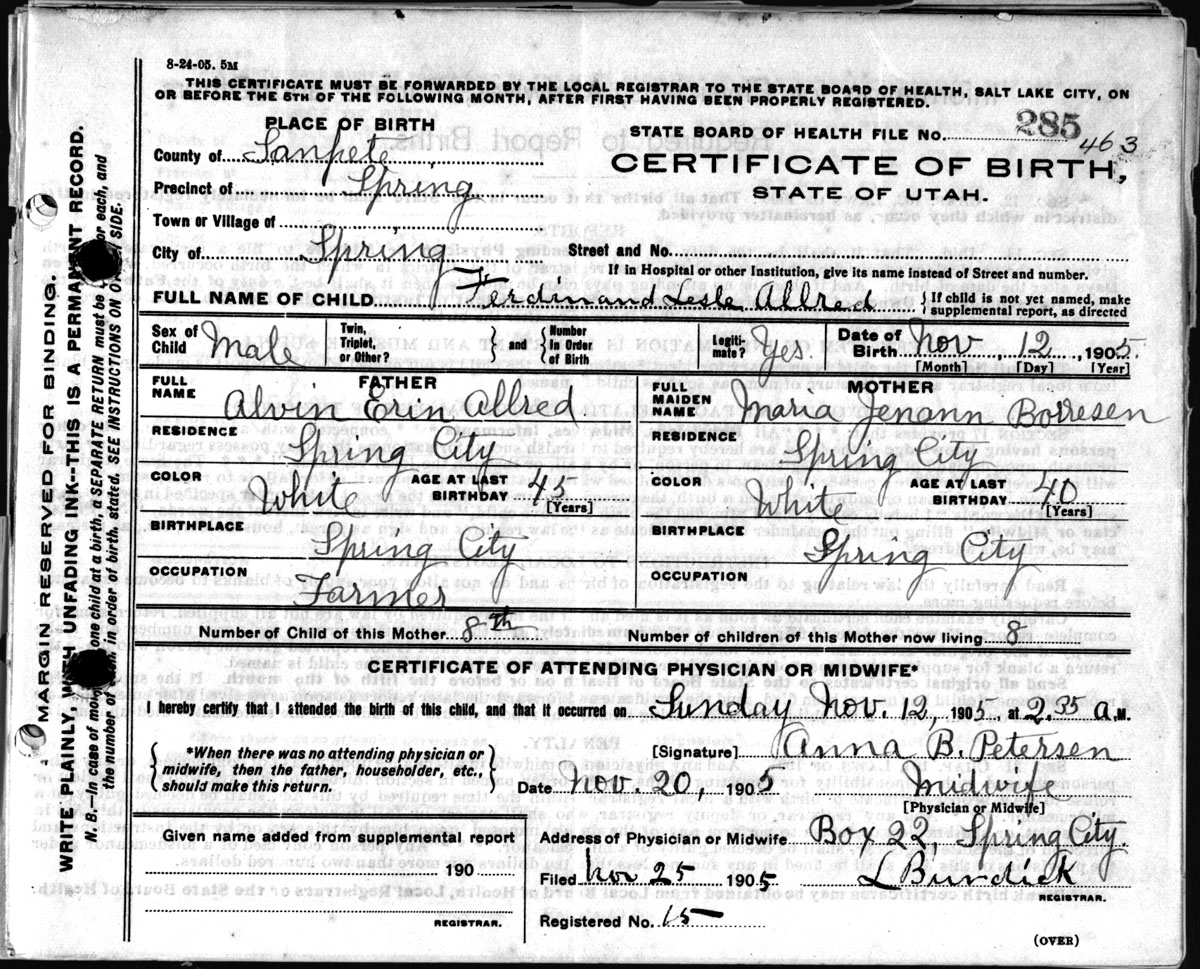 8-24-05. 5M
THIS CERTIFICATE MUST BE FORWARDED BY THE LOCAL REGISTRAR TO THE STATE BOARD OF HEALTH, SALT LAKE CITY, ON
OR BEFORE THE 5TH OF THE FOLLOWING MONTH, AFTER FIRST HAVING BEEN PROPERLY REGISTERED.
PLACE OF BIRTH
STATE BOARD OF HEALTH FILE No. 285 463
County of Sanpete
CERTIFICATE OF BIRTH,
STATE OF UTAH.
Precinct of Spring
Town or Village of
City of Spring Street and No.
If in Hospital or other Institution, give its name instead of Street and number.
FULL NAME OF CHILD Ferdinand Lesle Allred { If child is not yet named, make supplemental report, as directed
Sex of Child Male Twin, Triplet, or Other? } and { Number In Order of Birth Legiti-mate? Yes. Date of Birth Nov , 12 , 1905.
[Month] [Day] [Year]
FATHER MOTHER
FULL NAME Alvin Erin Allred FULL MAIDEN NAME Maria Jenann Borresen
RESIDENCE Spring City RESIDENCE Spring City
COLOR White AGE AT LAST BIRTHDAY 45 [Years] COLOR White AGE AT LAST BIRTHDAY 40 [Years]
BIRTHPLACE Spring City BIRTHPLACE Spring City
OCCUPATION Farmer OCCUPATION
Number of Child of this Mother 8th Number of children of this Mother now living 8
CERTIFICATE OF ATTENDING PHYSICIAN OR MIDWIFE*
I hereby certify that I attended the birth of this child, and that it occurred on Sunday Nov. 12, 1905, at 2.35 A.M.
{ *When there was no attending physician or midwife, then the father, householder, etc., should make this return. }
[Signature] Anna B. Petersen
Date Nov. 20, 1905 Midwife
[Physician or Midwife]
Given name added from a supplemental report
Address of Physician or Midwife Box 22, Spring City.
190
Filed Nov 25 1905 L Burdick
REGISTRAR.
REGISTRAR.
Registered No. 15
(OVER)
MARGIN RESERVED FOR BINDING.
WRITE PLAINLY WITH UNFADING INK--THIS IS A PERMANENT RECORD.
N. B.--In case of more one child at a birth a SEPARATE RETURN must be for each, and
the number of in order of birth stated. SEE INSTRUCTIONS ON SIDE.